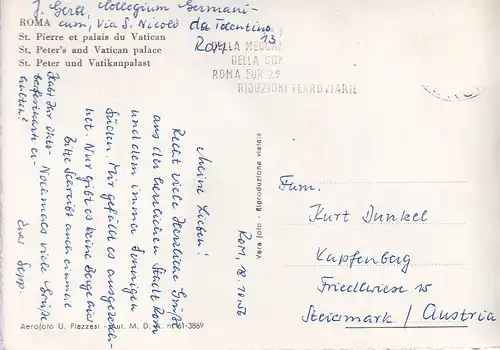 J. Gerl, Collegium Germani-
cum, Via S. Nicolò da Tolentino
Rom 13
ROMA
St. Pierre et palais du Vatican
St. Peter's and Vatican palace
St. Peter und Vatikanpalast
DELLA MECCAN
DELLA
ROMA EUR 29
RIDUZIONI FERROVIARIE
Rom, 18.10.56
Meine Lieben!
Recht viele Herzliche Grüße
aus der herrlichen Stadt Rom
und dem immer sonnigen
Süden. Mir gefällt es ausgezeich-
net. Nur gibt es keine Berge hier
Bitte schreibt auch einmal
Nochmals viele Grüße
Euer Sepp.
Habt Ihr die
karte er-
halten?
Vera foto - Riproduzione vietata
Fam.
Kurt Dunkel
Kapfenberg
Friedlwiese 15
Steiermark / Austria
Aerofoto U. Piazzesi - Aut. M. D. A. n. 61-3869